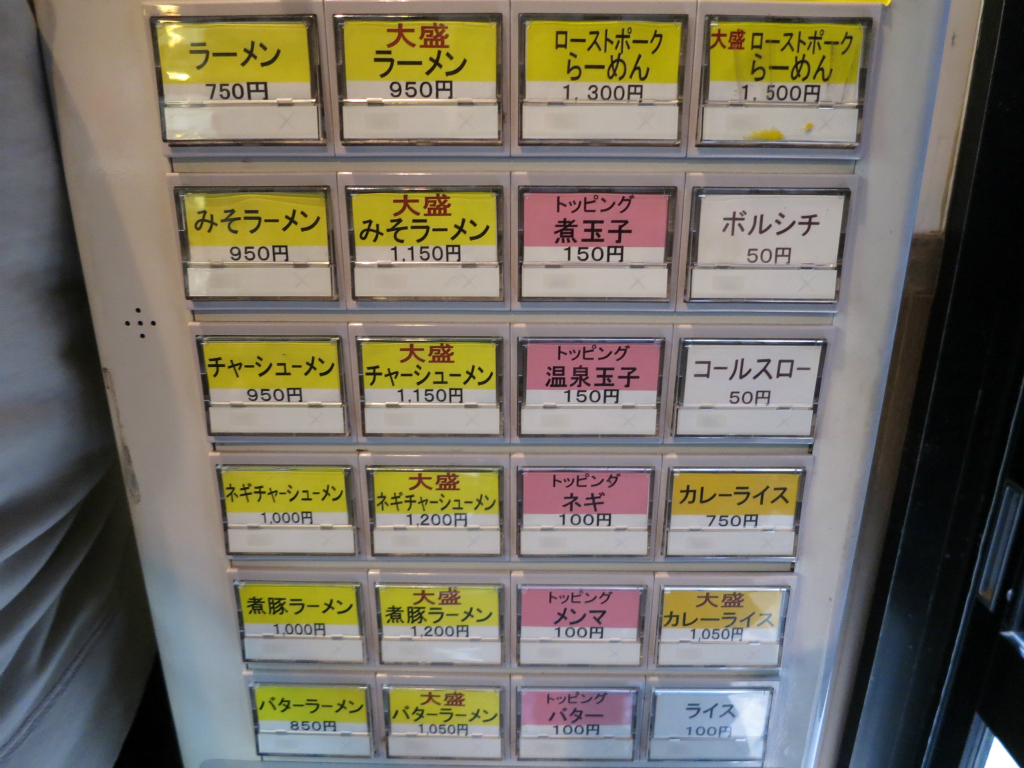 ラーメン
750円
大盛
ラーメン
950円
ローストポーク
らーめん
1,300円
大盛 ローストポーク
らーめん
1,500円
みそラーメン
950円
大盛
みそラーメン
1,150円
トッピング
煮玉子
150円
ボルシチ
50円
チャーシューメン
950円
大盛
チャーシューメン
1,150円
トッピング
温泉玉子
150円
コールスロー
50円
ネギチャーシューメン
1,000円
大盛
ネギチャーシューメン
1,200円
トッピング
ネギ
100円
カレーライス
750円
煮豚ラーメン
1,000円
大盛
煮豚ラーメン
1,200円
トッピング
メンマ
100円
大盛
カレーライス
1,050円
バターラーメン
850円
大盛
バターラーメン
1,050円
トッピング
バター
100円
ライス
100円